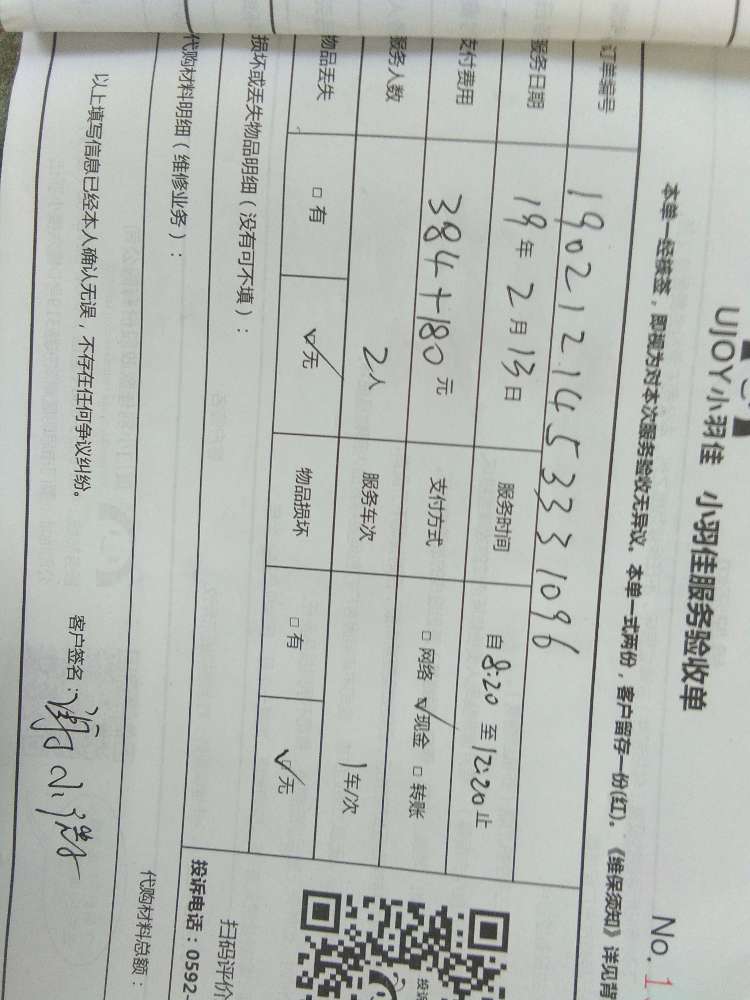 UJOY小羽佳 小羽佳服务验收单
No. 1
本单一经核签，即视为对本次服务验收无异议。本单一式两份，客户留存一份(红)。《维保须知》详见背
订单编号 1902121453331096
服务日期 19年2月13日 服务时间 自8:20至12:20止
支付费用 384+180元 支付方式 □网络 ☑现金 □转账
服务人数 2人 服务车次 1车/次
物品丢失 □有 ☑无 物品损坏 □有 ☑无
损坏或丢失物品明细（没有可不填）：
代购材料明细（维修业务）：
扫码评价
投诉
投诉电话：0592-
代购材料总额：
以上填写信息已经本人确认无误，不存在任何争议纠纷。 客户签名：